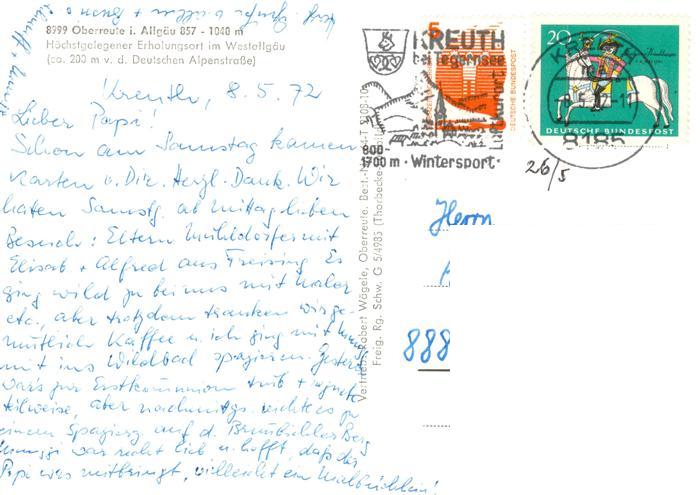 8999 Oberreute i. Allgäu 857 - 1040 m
Höchstgelegener Erholungsort im Westallgäu
(ca. 200 m v. d. Deutschen Alpenstraße)
Kreuth, 8.5.72
Lieber Papi!
Schon am Samstag kamen
Karten v. Dir. Herzl. Dank. Wir
hatten Samstg. ab Mittag lieben
Besuch: Eltern Mühldorfer mit
Elisab + Alfred aus Freising. Es
ging wild zu bei uns mit Maler
etc., aber trotzdem tranken wir ge-
mütlich Kaffee u. ich ging mit
mit ins Wildbad spazieren. Gestern
war's zur Erstkommunion trüb + regnete
teilweise, aber nachmittgs. reichte es zu
einem Spazierg auf d.
war recht lieb u. hofft, daß der
Papi was mitbringt, vielleicht ein Malbüchlein!
Vertrieb: Robert Wägele, Oberreute. Best.-Nr.
Freig. Rg. Schw. G 5/4985 (Thorbecke
KREUTH
bei Tegernsee
Luftkurort
800-
1700 m · Wintersport ·
5
DEUTSCHE BUNDESPOST
20
DEUTSCHE BUNDESPOST
KREUTH
8185
26/5
Herrn
888